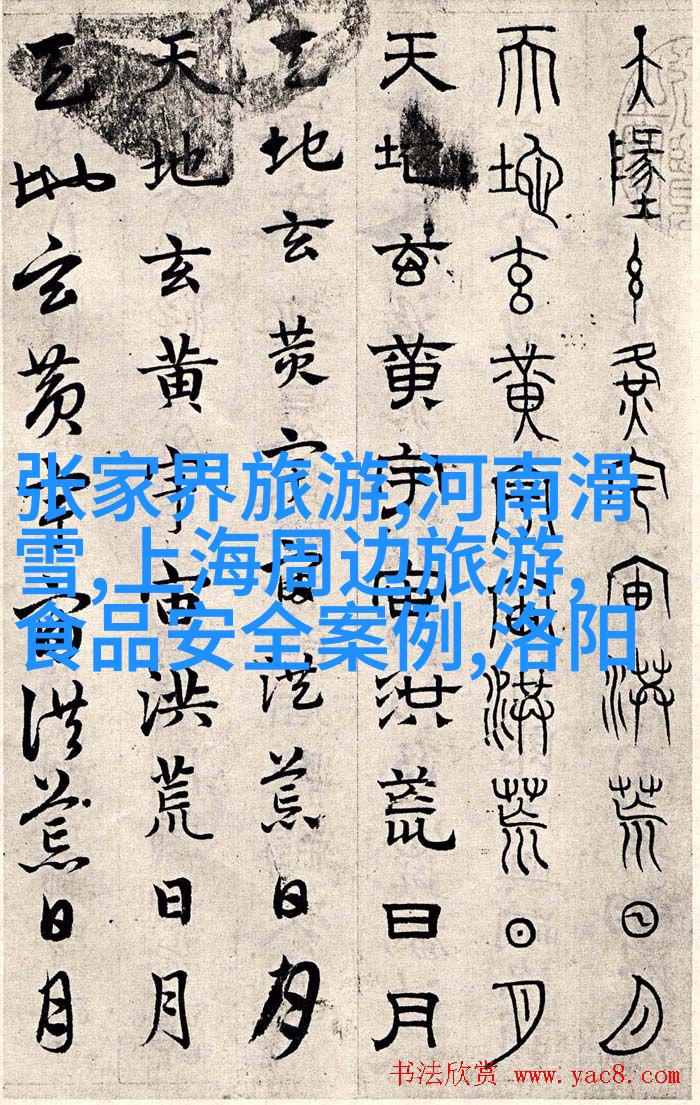 天墬玄黃宇宙洪荒日月
天地玄黃宇宙洪荒日月
天地玄黃宇宙洪荒日月
天地玄黃宇宙洪荒日月
天地玄黃宇宙洪荒日月
天地玄黃宇宙洪荒日月
张家界旅游,河南滑
雪,上海周边旅游,
食品安全案例,洛阳
书法欣赏 www.yac8.com